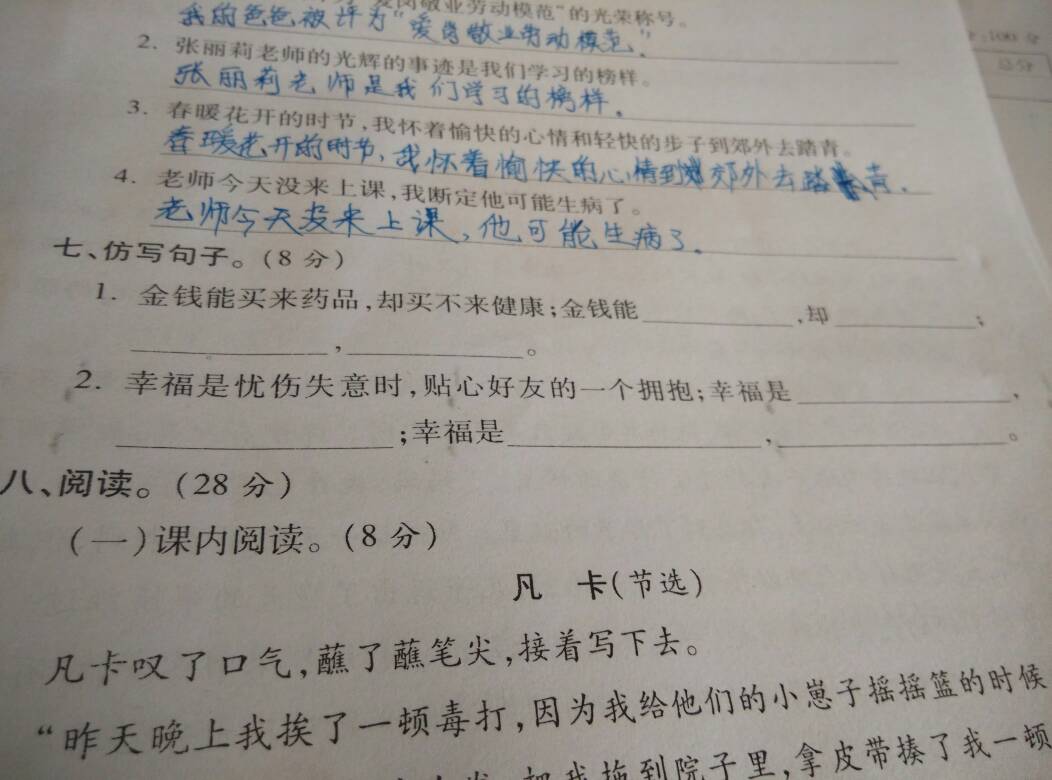 爱岗敬业劳动模范”的光荣称号。
我的爸爸被评为“爱岗敬业劳动模范”。
:100 分
总分
2. 张丽莉老师的光辉的事迹是我们学习的榜样。
张丽莉老师是我们学习的榜样。
3. 春暖花开的时节,我怀着愉快的心情和轻快的步子到郊外去踏青。
春暖花开的时节,我怀着愉快的心情到郊外去踏青.
4. 老师今天没来上课,我断定他可能生病了。
老师今天没来上课,他可能生病了.
七、仿写句子。(8 分)
1. 金钱能买来药品,却买不来健康;金钱能____,却____;
____,____。
2. 幸福是忧伤失意时,贴心好友的一个拥抱;幸福是____,
____;幸福是____,____。
八、阅读。(28 分)
(一)课内阅读。(8 分)
凡 卡(节选)
凡卡叹了口气,蘸了蘸笔尖,接着写下去。
“昨天晚上我挨了一顿毒打,因为我给他们的小崽子摇摇篮的时候
把我拖到院子里,拿皮带揍了我一顿